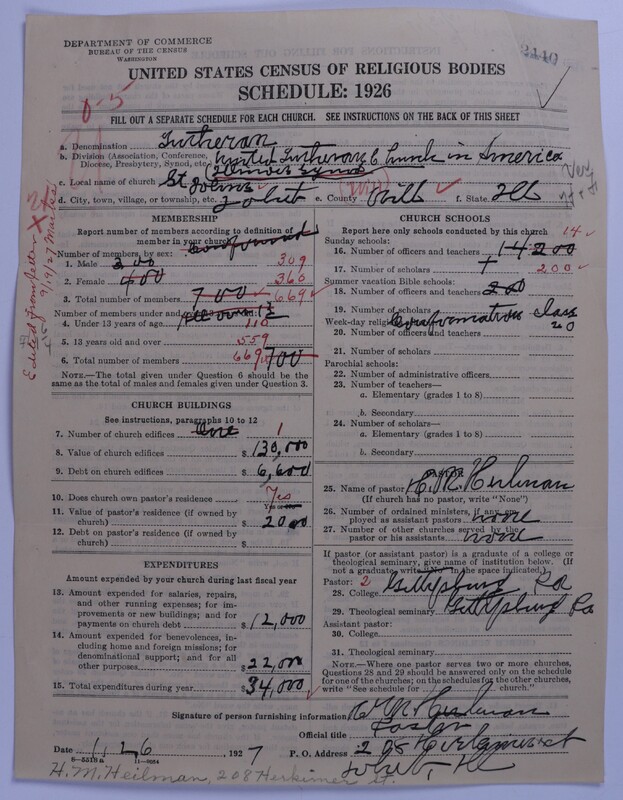 DEPARTMENT OF COMMERCE
BUREAU OF THE CENSUS
WASHINGTON
2110
UNITED STATES CENSUS OF RELIGIOUS BODIES
SCHEDULE: 1926
FILL OUT A SEPARATE SCHEDULE FOR EACH CHURCH. SEE INSTRUCTIONS ON THE BACK OF THIS SHEET
0-5
a. Denomination Lutheran
b. Division (Association, Conference, Diocese, Presbytery, Synod, etc.) United Lutheran Church in America
(Illinois Synod)
c. Local name of church St Johns
d. City, town, village, or township, etc. Joliet e. County Will (Will) f. State Ill
Edited from letter 9/9/27
MEMBERSHIP
Report number of members according to definition of member in your church confirmed
Number of members, by sex:
1. Male 300 309
2. Female 400 360
3. Total number of members 700 669
Number of members under and over 13
4. Under 13 years of age 110
5. 13 years old and over 559
6. Total number of members 669 700
NOTE.—The total given under Question 6 should be the same as the total of males and females given under Question 3.
CHURCH BUILDINGS
See instructions, paragraphs 10 to 12
7. Number of church edifices One 1
8. Value of church edifices $ 130,000
9. Debt on church edifices $ 6,600
10. Does church own pastor's residence Yes
Yes or no
11. Value of pastor's residence (if owned by church) $ 2000
12. Debt on pastor's residence (if owned by church) $
EXPENDITURES
Amount expended by your church during last fiscal year
13. Amount expended for salaries, repairs, and other running expenses; for improvements or new buildings; and for payments on church debt $ 12,000
14. Amount expended for benevolences, including home and foreign missions; for denominational support; and for all other purposes $ 22,000
15. Total expenditures during year $ 34,000
CHURCH SCHOOLS
Report here only schools conducted by this church
Sunday schools:
16. Number of officers and teachers 14 200 14
17. Number of scholars 200
Summer vacation Bible schools:
18. Number of officers and teachers 200
19. Number of scholars
Week-day religious schools: Confirmation Class
20. Number of officers and teachers 20
21. Number of scholars
Parochial schools:
22. Number of administrative officers
23. Number of teachers—
a. Elementary (grades 1 to 8)
b. Secondary
24. Number of scholars—
a. Elementary (grades 1 to 8)
b. Secondary
PASTOR
25. Name of pastor H M Heilman
(If church has no pastor, write "None")
26. Number of ordained ministers, if any, employed as assistant pastors none
27. Number of other churches served by the pastor or his assistants none
If pastor (or assistant pastor) is a graduate of a college or theological seminary, give name of institution below. (If not a graduate write "No" in the space indicated.)
Pastor: 2
28. College Gettysburg Pa
29. Theological seminary Gettysburg Pa
Assistant pastor:
30. College
31. Theological seminary
NOTE.—Where one pastor serves two or more churches, Questions 28 and 29 should be answered only on the schedule for one of the churches; on the schedules for the other churches, write "See schedule for church."
Signature of person furnishing information H M Heilman
Official title Pastor
Date 1, 26 1927 P. O. Address 208 Herkimer st
Joliet, Ill
8-5518a 11-9084
H. M. Heilman, 208 Herkimer st.